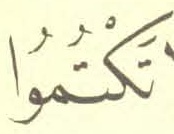 تَكْتُمُوا